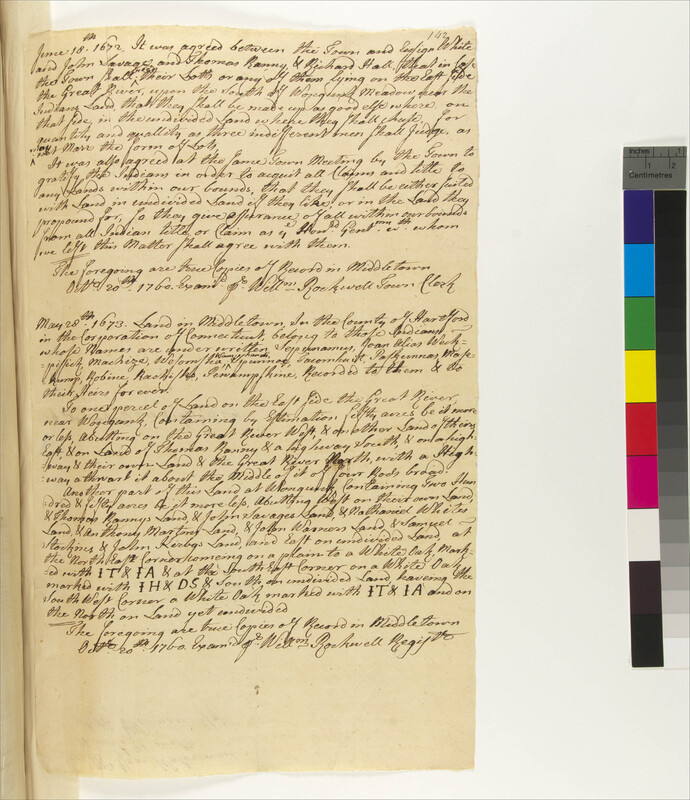 142
June 18th. 1672. It was agreed between the Town and Ensign White
and John Savage and Thomas Ranny, & Richard Hall, that in Case
the Town shall their Lotts or any of them lying on the East Side
the Great River, upon the South of Wongunk Meadow, near the
Indians Land, that they shall be made up as good elsewhere, on
that side, in the undivided Land where they shall chuse, for
quantity and quallity as three indifferent men shall Judge, as
also More the form of Lots,
It was also agreed at the same Town Meeting by the Town to
gratify the Indians in order to acquit all Claims and title to
any Lands within our bounds, that they shall be either suited
with Land in undivided Land if they like, or in the Land they
propound for, so they give assurance of all within our bounds
from all Indian title, or Claim as ye. Hon.d Gent.mn wth. whom
we left this Matter shall agree with them.
The foregoing are true Copies of Record in Middletown
Octr. 20th. 1760. Examd. pr. Wellm. Rockwell Town Clerk
May 28th. 1673. Land in Middletown, In the County of Hartford
in the Corporation of Connecticut, belong to those Indians
whose Names are under written Seppunamus, Joan Alias Week-
pissick, Machize,
Robine,
their Heirs forever.
To one percel of Land on the East Side the Great River,
near Wongunk, Containing by Estimation fifty acres be it more
or less, Abutting on the Great River West, & on other Land of theirs
East, & on Land of Thomas Ranny & a highway South, & on a high-
way & their own Land & the Great River North, with a High-
way athwart it about the Middle of it of four Rods broad.
Another part of this Land at Wongunk, Containing Two Hun
dred & fifty acres be it more less, Abutting West on their own Land,
& Thomas Rannys Land & John Savages Land, & Nathaniel Whites
Land, & Anthony Martins Land, & John Warners Land & Samuel
Stockins & John Kirbys Land, and East on undivided Land, at
the North East Corner comeing on a plain to a White Oak Mark-
ed with IT & IA & at the South East Corner on a White Oak
marked with IH & DS & South on undivided Land haveing the
South West Corner a White Oak marked with IT & IA and on
the North on Land yet undivided
The foregoing are true Copies of Record in Middletown
Octr. 20th. 1760. Examd. pr. Wellm. Rockwell Registr
Inches
1
1
2
Centimetres